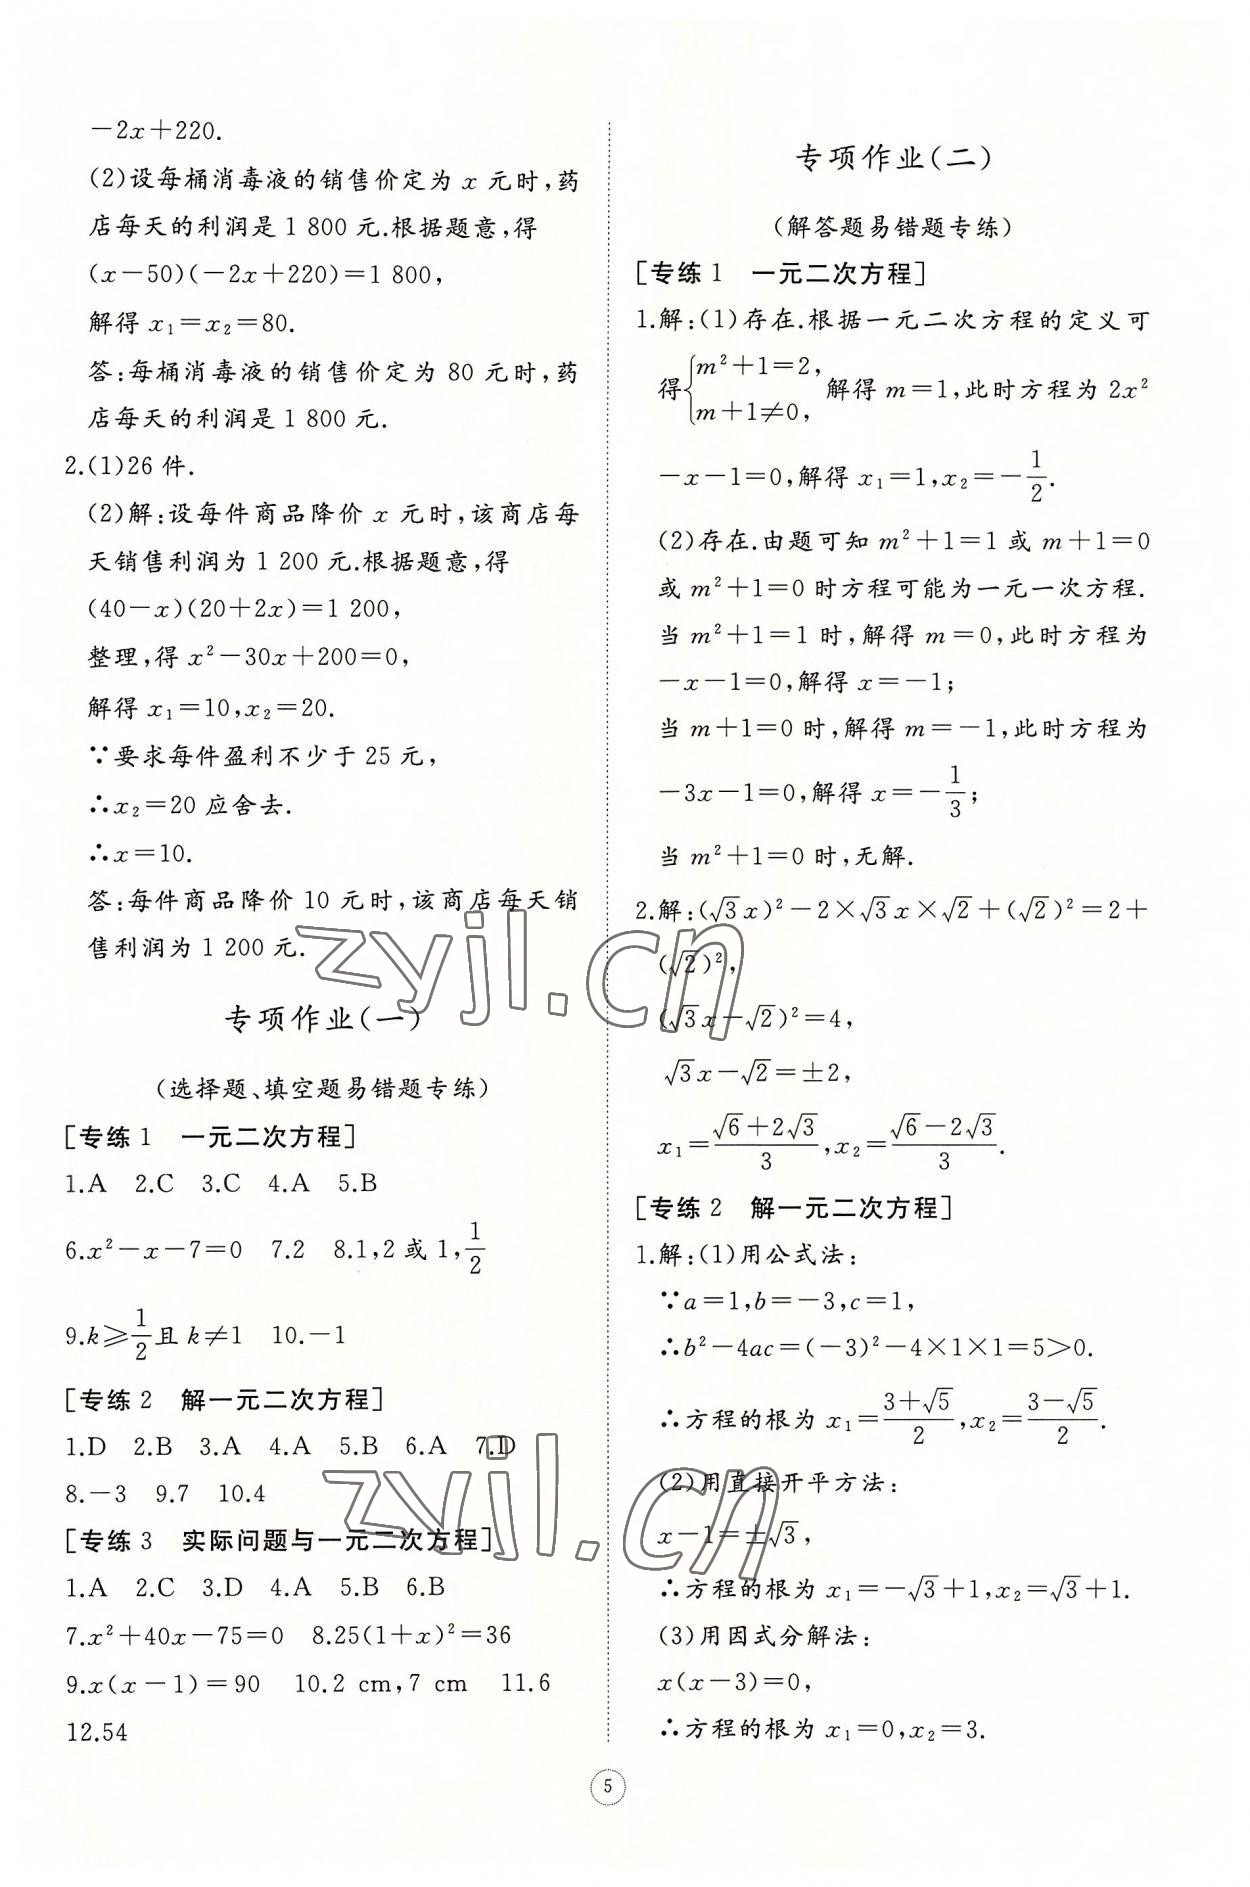 －2x＋220.
(2)设每桶消毒液的销售价定为 x 元时,药
店每天的利润是 1 800 元.根据题意,得
(x－50)(－2x＋220)＝1 800,
解得 x₁＝x₂＝80.
答:每桶消毒液的销售价定为 80 元时,药
店每天的利润是 1 800 元.
2.(1)26 件.
(2)解:设每件商品降价 x 元时,该商店每
天销售利润为 1 200 元.根据题意,得
(40－x)(20＋2x)＝1 200,
整理,得 x²－30x＋200＝0,
解得 x₁＝10,x₂＝20.
∵要求每件盈利不少于 25 元,
∴x₂＝20 应舍去.
∴x＝10.
答:每件商品降价 10 元时,该商店每天销
售利润为 1 200 元.
专项作业(一)
(选择题、填空题易错题专练)
[专练1 一元二次方程]
1.A 2.C 3.C 4.A 5.B
6.x²－x－7＝0 7.2 8.1,2 或 1,1/2
9.k≥1/2且 k≠1 10.－1
[专练2 解一元二次方程]
1.D 2.B 3.A 4.A 5.B 6.A 7.D
8.－3 9.7 10.4
[专练3 实际问题与一元二次方程]
1.A 2.C 3.D 4.A 5.B 6.B
7.x²＋40x－75＝0 8.25(1＋x)²＝36
9.x(x－1)＝90 10.2 cm,7 cm 11.6
12.54
专项作业(二)
(解答题易错题专练)
[专练1 一元二次方程]
1.解:(1)存在.根据一元二次方程的定义可
得{m²＋1＝2, m＋1≠0, 解得 m＝1,此时方程为 2x²
－x－1＝0,解得 x₁＝1,x₂＝－1/2.
(2)存在.由题可知 m²＋1＝1 或 m＋1＝0
或 m²＋1＝0 时方程可能为一元一次方程.
当 m²＋1＝1 时,解得 m＝0,此时方程为
－x－1＝0,解得 x＝－1;
当 m＋1＝0 时,解得 m＝－1,此时方程为
－3x－1＝0,解得 x＝－1/3;
当 m²＋1＝0 时,无解.
2.解:(√3x)²－2×√3x×√2＋(√2)²＝2＋
(√2)²,
(√3x－√2)²＝4,
√3x－√2＝±2,
x₁＝(√6＋2√3)/3,x₂＝(√6－2√3)/3.
[专练2 解一元二次方程]
1.解:(1)用公式法:
∵a＝1,b＝－3,c＝1,
∴b²－4ac＝(－3)²－4×1×1＝5＞0.
∴方程的根为 x₁＝(3＋√5)/2,x₂＝(3－√5)/2.
(2)用直接开平方法:
x－1＝±√3,
∴方程的根为 x₁＝－√3＋1,x₂＝√3＋1.
(3)用因式分解法:
x(x－3)＝0,
∴方程的根为 x₁＝0,x₂＝3.
5
zyjl.cn
zyjl.cn